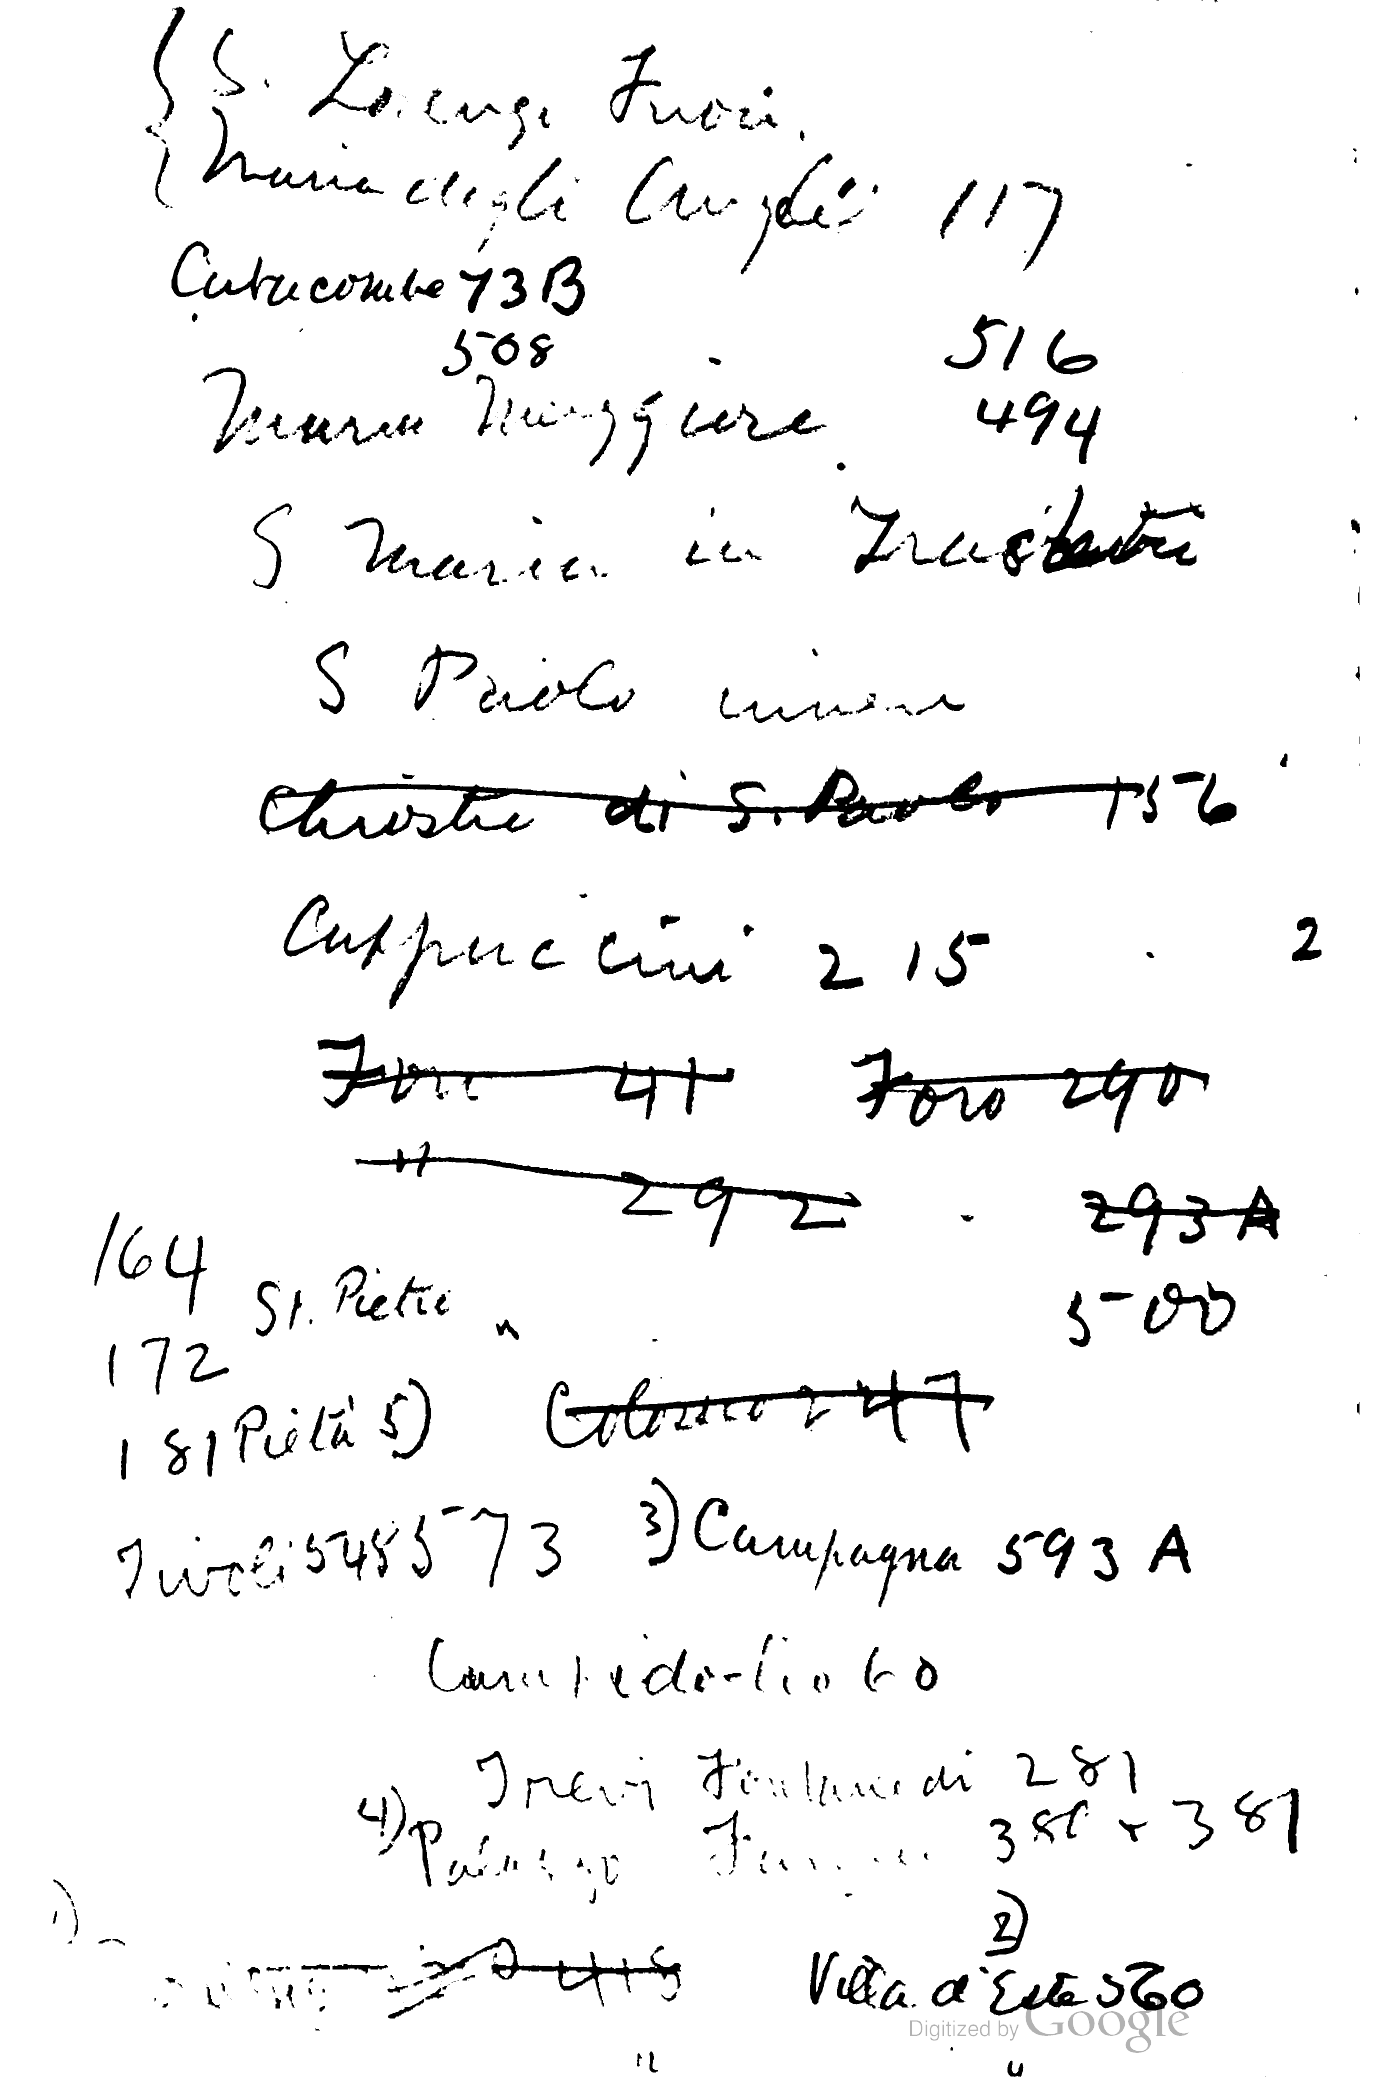 S. Lorenzo Fuori.
Maria degli Angeli 117
Catacombe 73B
508 516
Maria Maggiore 494
S Maria in
S Paolo
Chiostro di S. Paolo 156
Cappuccini 215 2
Foro 41 Foro 290
" 292 293A
164 St. Pietro 500
172 "
181 Pietà 5) Colosseo 247
Tivoli 548 573 3) Campagna 593 A
60
Trevi Fontana di 281
4) Palazzo 381
1) 2)
Villa d'Este 560
Digitized by Google
" "